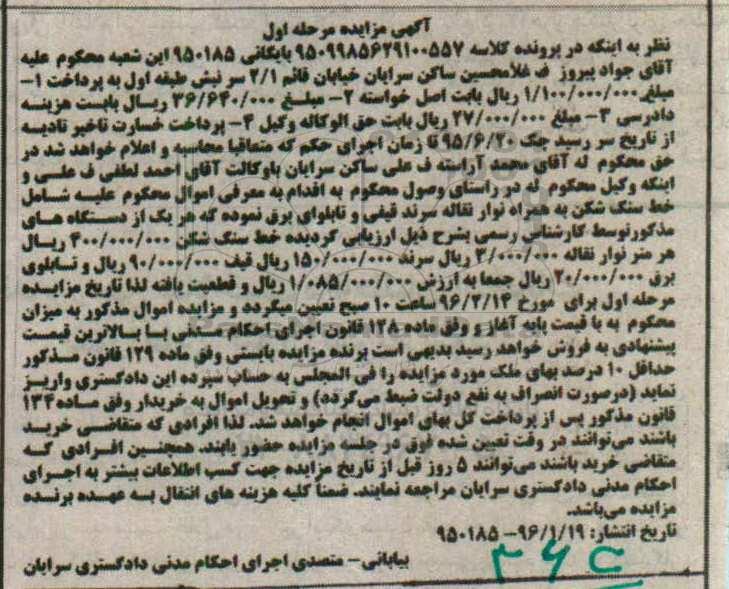 آگهی مزایده مرحله اول
نظر به اینکه در پرونده کلاسه ۹۵۰۹۹۸۵۶۲۹۱۰۰۵۵۷ بایگانی ۹۵۰۱۸۵ این شعبه محکوم علیه
آقای جواد پیروز ف غلامحسین ساکن سرایان خیابان قائم ۲/۱ سر نبش طبقه اول به پرداخت ۱-
مبلغ ۱/۱۰۰/۰۰۰/۰۰۰ ریال بابت اصل خواسته ۲- مبلغ ۳۶/۶۴۰/۰۰۰ ریال بابت هزینه
دادرسی ۳- مبلغ ۲۷/۰۰۰/۰۰۰ ریال بابت حق الوکاله وکیل ۴- پرداخت خسارت تاخیر تادیه
از تاریخ سر رسید چک ۹۵/۶/۲۰ تا زمان اجرای حکم که متعاقبا محاسبه و اعلام خواهد شد در
حق محکوم له آقای محمد آراسته ف علی ساکن سرایان باوکالت آقای احمد لطفی ف علی و
اینکه وکیل محکوم له در راستای وصول محکوم به اقدام به معرفی اموال محکوم علیه شامل
خط سنگ شکن به همراه نوار نقاله سرند قیفی و تابلوای برق نموده که هر یک از دستگاه های
مذکورتوسط کارشناس رسمی بشرح ذیل ارزیابی گردیده خط سنگ شکن ۴۰۰/۰۰۰/۰۰۰ ریال
هر متر نوار نقاله ۳/۰۰۰/۰۰۰ ریال سرند ۱۵۰/۰۰۰/۰۰۰ ریال قیف ۹۰/۰۰۰/۰۰۰ ریال و تابلوی
برق ۲۰/۰۰۰/۰۰۰ ریال جمعا به ارزش ۱/۰۸۵/۰۰۰/۰۰۰ ریال و قطعیت یافته لذا تاریخ مزایده
مرحله اول برای مورخ ۹۶/۲/۱۴ ساعت ۱۰ صبح تعیین میگردد و مزایده اموال مذکور به میزان
محکوم به با قیمت پایه آغاز و وفق ماده ۱۲۸ قانون اجرای احکام مدنی با بالاترین قیمت
پیشنهادی به فروش خواهد رسید بدیهی است برنده مزایده بایستی وفق ماده ۱۲۹ قانون مذکور
حداقل ۱۰ درصد بهای ملک مورد مزایده را فی المجلس به حساب سپرده این دادگستری واریز
نماید (درصورت انصراف به نفع دولت ضبط می‌گردد) و تحویل اموال به خریدار وفق ماده ۱۳۴
قانون مذکور پس از پرداخت کل بهای اموال انجام خواهد شد. لذا افرادی که متقاضی خرید
باشند می‌توانند در وقت تعیین شده فوق در جلسه مزایده حضور یابند. همچنین افرادی که
متقاضی خرید باشند می‌توانند ۵ روز قبل از تاریخ مزایده جهت کسب اطلاعات بیشتر به اجرای
احکام مدنی دادگستری سرایان مراجعه نمایند. ضمناً کلیه هزینه های انتقال به عهده برنده
مزایده می‌باشد.
تاریخ انتشار: ۹۶/۱/۱۹- ۹۵۰۱۸۵
بیابانی- متصدی اجرای احکام مدنی دادگستری سرایان